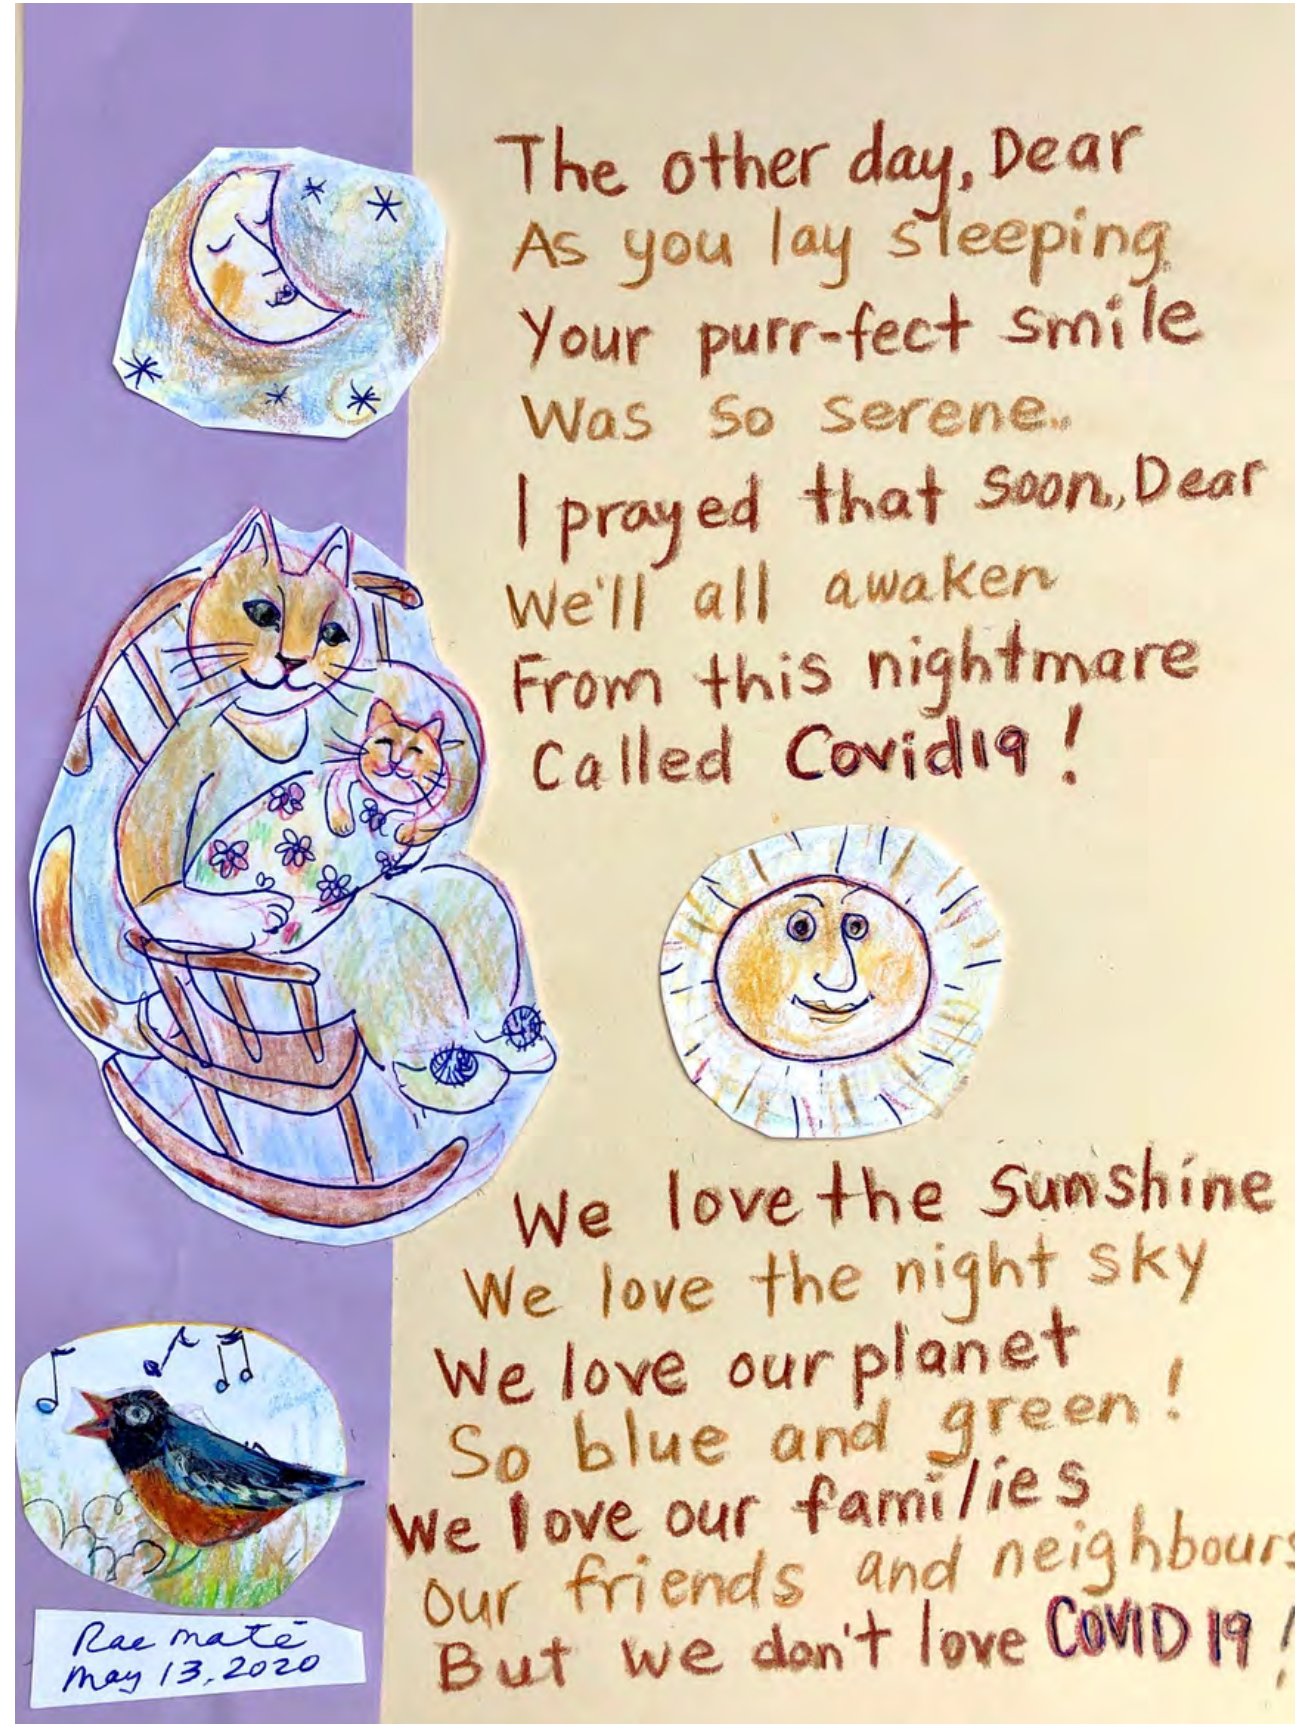 The other day, Dear
As you lay sleeping
Your purr-fect smile
Was so serene..
I prayed that soon, Dear
We'll all awaken
From this nightmare
Called Covid19!
We love the sunshine
We love the night sky
We love our planet
So blue and green!
We love our families
our friends and neighbours
But we don't love COVID 19!
Rae maté
may 13, 2020